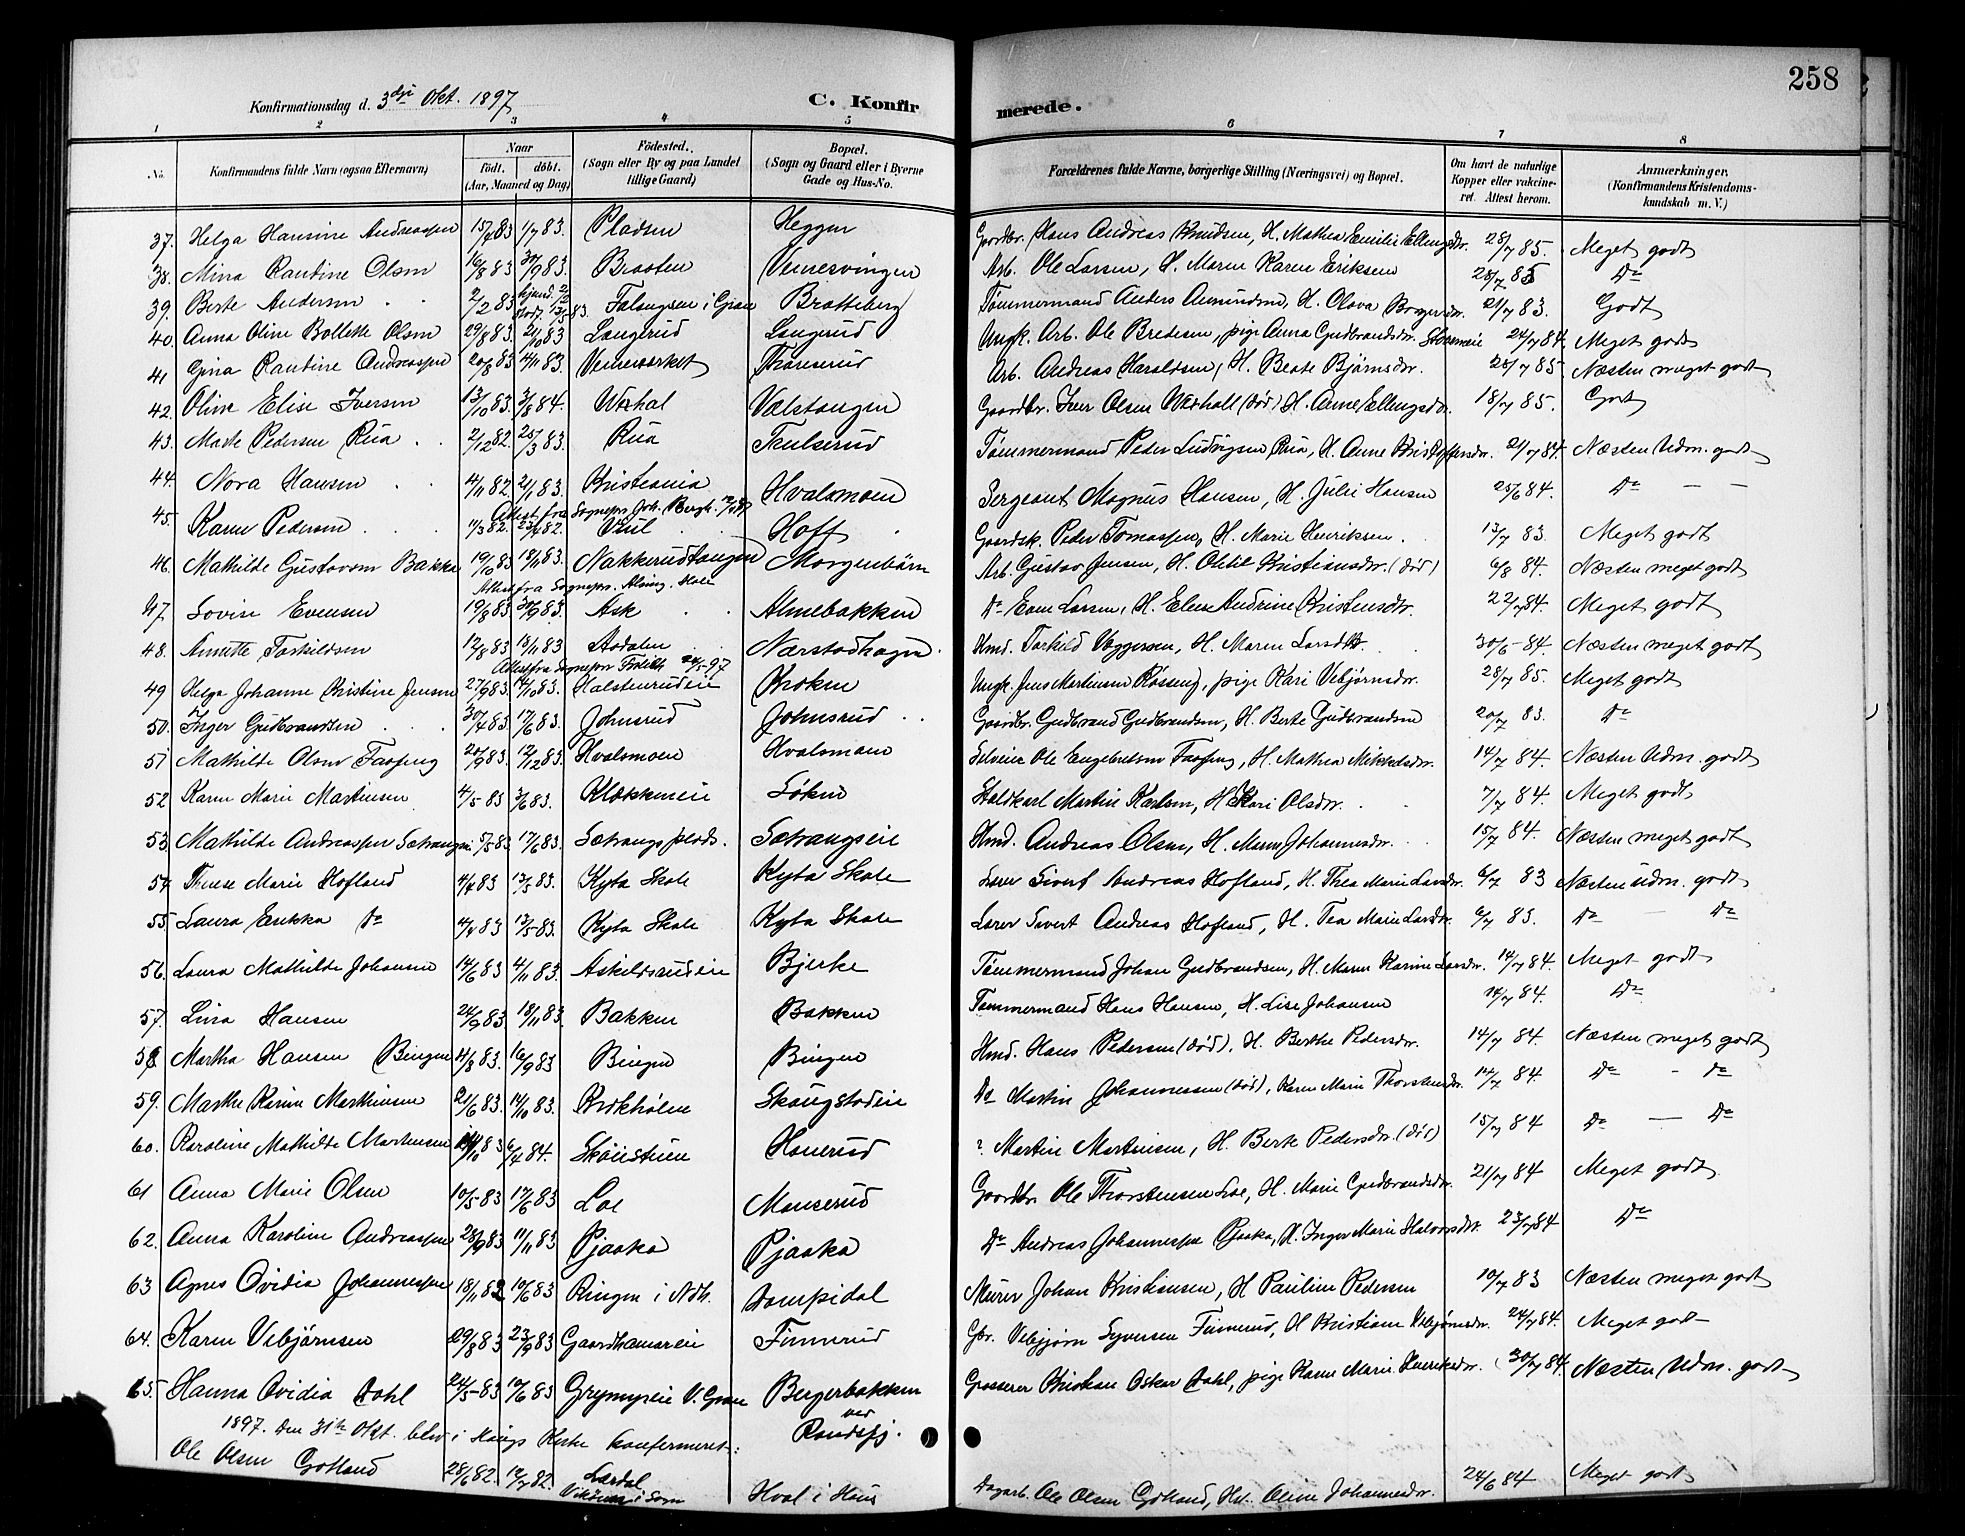 258
Konfirmationsdag d. 3die Okt. 1897
C. Konfirmerede.
1 2 3 4 5 6 7 8
No. Konfirmandens fulde Navn (ogsaa Efternavn) Naar födt. döbt. (Aar, Maaned og Dag) Födested. (Sogn eller By og paa Landet tillige Gaard) Bopæl. (Sogn og Gaard eller i Byerne Gade og Hus-No. Forældrenes fulde Navne, borgerlige Stilling (Næringsvei) og Bopæl. Om havt de naturlige Kopper eller vakcineret. Attest herom. Anmærkninger. (Konfirmandens Kristendomskundskab m. V.)
37. Helga Hansine Andreassen 15/4 83 1/7 83. Pladsen Heggen Gaardbr. Hans Andreas Knudsen, H. Mathea Emilie Ellingsdr. 28/7 85. Meget godt
38. Mina Randine Olsen 16/8 83 30/9 83. Braaten Venesvingen Arb. Ole Larsen, H. Maren Karen Eriksen 28/7 85 Do
39. Berte Andersen 2/2 83 Falangsen i Gran Bratteberg Tømmermand Anders Amundsen, H. Olava 21/7 83. Godt
40. Anna Oline Bollette Olsen 29/8 83. 21/10 83 Langerud Langerud Ungk. Arb. Ole Bredesen, pige Anna Gudbrandsdr. 24/7 84. Meget godt
41 Gina Randine Andreassen 20/8 83 4/11 83. Veme Thonserud Arb. Andreas Haraldsen, H. Beate Bjørnsdr. 25/7 85. Næsten meget godt
42. Oline Elise Iversen 13/10 83. 3/8 84. Værhal Vælstangen Gaardbr. Iver Olsen Værhall (død) H. Anne Ellingsdr. 18/7 85. Godt
43. Marte Pedersen Rua 2/12 82. 25/3 83. Rua Skulserud Tømmermand Peder Ludvigsen Rua, H. Anne Kristoffersdr. 21/7 84. Næsten Udm. godt
44. Nora Hansen 4/11 82. 21/1 83. Kristiania Hvalsmoen Sergeant Magnus Hansen, H. Julie Hansen 25/6 84. Do — —
Attest fra Sognepr. Joh. Bergh.
45. Karen Pedersen 11/3 82. 23/4 82. Veul Hoff Gaardsk. Peder Tomassen, H. Marie Henriksen. 13/7 83. Meget godt
46. Mathilde Gustavsen Bakke 19/9 83 18/11 83. Nakkerudtangen Morgenbørn Arb. Gustav Jensen, H. Kristiansdr. (død) 6/8 84. Næsten meget godt
Attest fra Sognepr. Hole
47. Lovise Evensen 19/8 83. 30/9 83. Ask Almebakken Do Even Larsen, H. Elene Andrine Kristensdr. 22/7 84. Meget godt
48. Anette Torkildsen 12/8 83 18/11 83 Aadalen Nærstadhagen. Hmd. Torkild Veggersen, H. Maren Larsdtr. 30/6-84. Næsten meget godt
Attest fra Sognepr. 24/5-97
49 Helga Johanne Kristine Jensen 27/9 83. 14/10 83. Halstenrudeie Kroken Ungk. Jens Martinsen Røsseng, pige Kari Vebjørnsdr. 28/7 85. Meget godt
50. Inger Gudbrandsen 30/4 83. 17/6 83. Johnsrud Johnsrud Gaardbr. Gudbrand Gudbrandsen, H. Berte Gudbrandsen 20/7 83. Do
51 Mathilde Olsen Fosseng 20/9 83. 12/12 83. Hvalsmoen Hvalsmoen Selveier Ole Engebretsen Fosseng, H. Mathea Mikkelsdr. 14/7 84. Næsten Udm. godt
52 Karen Marie Martinsen 4/5 83 3/6 83. Klækkeneie Søkne Staldkarl Martin Karlsen, H. Kari Olsdr. 7/7 84. Meget godt
53 Mathilde Andreassen Sætrangeie 5/5 83. 17/6 83. Sætrangsplads. Sætrangseie Hmd. Andreas Olsen, H. Maren Johannesdr. 15/7 84. Næsten meget godt
54 Therese Marie Hofland 4/4 83 13/5 83. Kyta Skole Kyta Skole Lærer Sivert Andreas Hofland, H. Thea Marie Larsdr. 6/7 83 Næsten udm. godt
55. Laura Erikka Do 4/4 83 13/5-83. Kyta Skole Kyta Skole Lærer Sivert Andreas Hofland, H. Tea Marie Larsdr. 6/7 83. Do — Do
56. Laura Mathilde Johansen 14/6 83 4/11 83. Askildsrudeie Bjerke Tømmermand Johan Gudbrandsen, H. Maren Karine Larsdr. 14/7 84. Meget godt
57. Lina Hansen 24/9 83. 18/11 83. Bakken Bakken Tømmermand Hans Hansen, H. Lise Johansen 14/7 84. Do
58 Martha Hansen Bingen 4/8 83. 16/9 83 Bingen Bingen Hmd. Hans Pedersen (død). H. Berthe Pedersdr. 14/7 84. Næsten meget godt
59. Marthe Karine Marthinsen 21/6 83. 14/10 83. Krokholen Skaugstadeie Do Martin Johannessen (død), Karen Marie Thorstensdr. 14/7 84. Do - Do
60. Karoline Mathilde Martinsen 83 6/4 84. Skoiestuen Honerud " Martin Martinsen, H. Berte Pedersdr. (død) 15/7 84 Do — Do
61 Anna Marie Olsen 10/5-83 17/6 83 Loe Monserud Gaardbr. Ole Thorstensen Loe, H. Marie Gudbrandsdr. 21/7 84 Meget godt
62. Anna Karoline Andreassen 28/9 83 11/11 83 Pjaaka Pjaaka Do Andreas Johannessen Pjaaka, H. Inger Marie Halvorsdtr. 23/7 84 Do
63 Agnes Ovidia Johannessen 18/11 82 10/6 83 Ringen i Adh. Dompidal Murer Johan Kristiansen, H Pauline Pedersen 10/7 83 Næsten meget godt
64. Karen Vebjørnsen 29/8 83 23/9 83 Gaardhamareie Finnerud Gbr. Vebjørn Syversen Finnerud, H Kristiane Vebjørnsdr. 24/7 84. Meget godt
65. Hanna Ovidia Dahl 24/5-83 10/6 83 Grymyreie V. Gran Bergerbakken ved Randsfj. Grosserer Kristian Oskar Dahl, pige Karen Marie Henriksdr. 30/7 84 Næsten Udm. godt
1897. Den 31te Okt. blev i Haugs Kirke konfirmeret:
Ole Olsen Gotland 28/6 82. 12/7 82. Lærdal i Sogn Hval i Haug Dagarb. Ole Olsen Gotland, Hu. Oline Johannesdr. 24/6 84 Meget godt